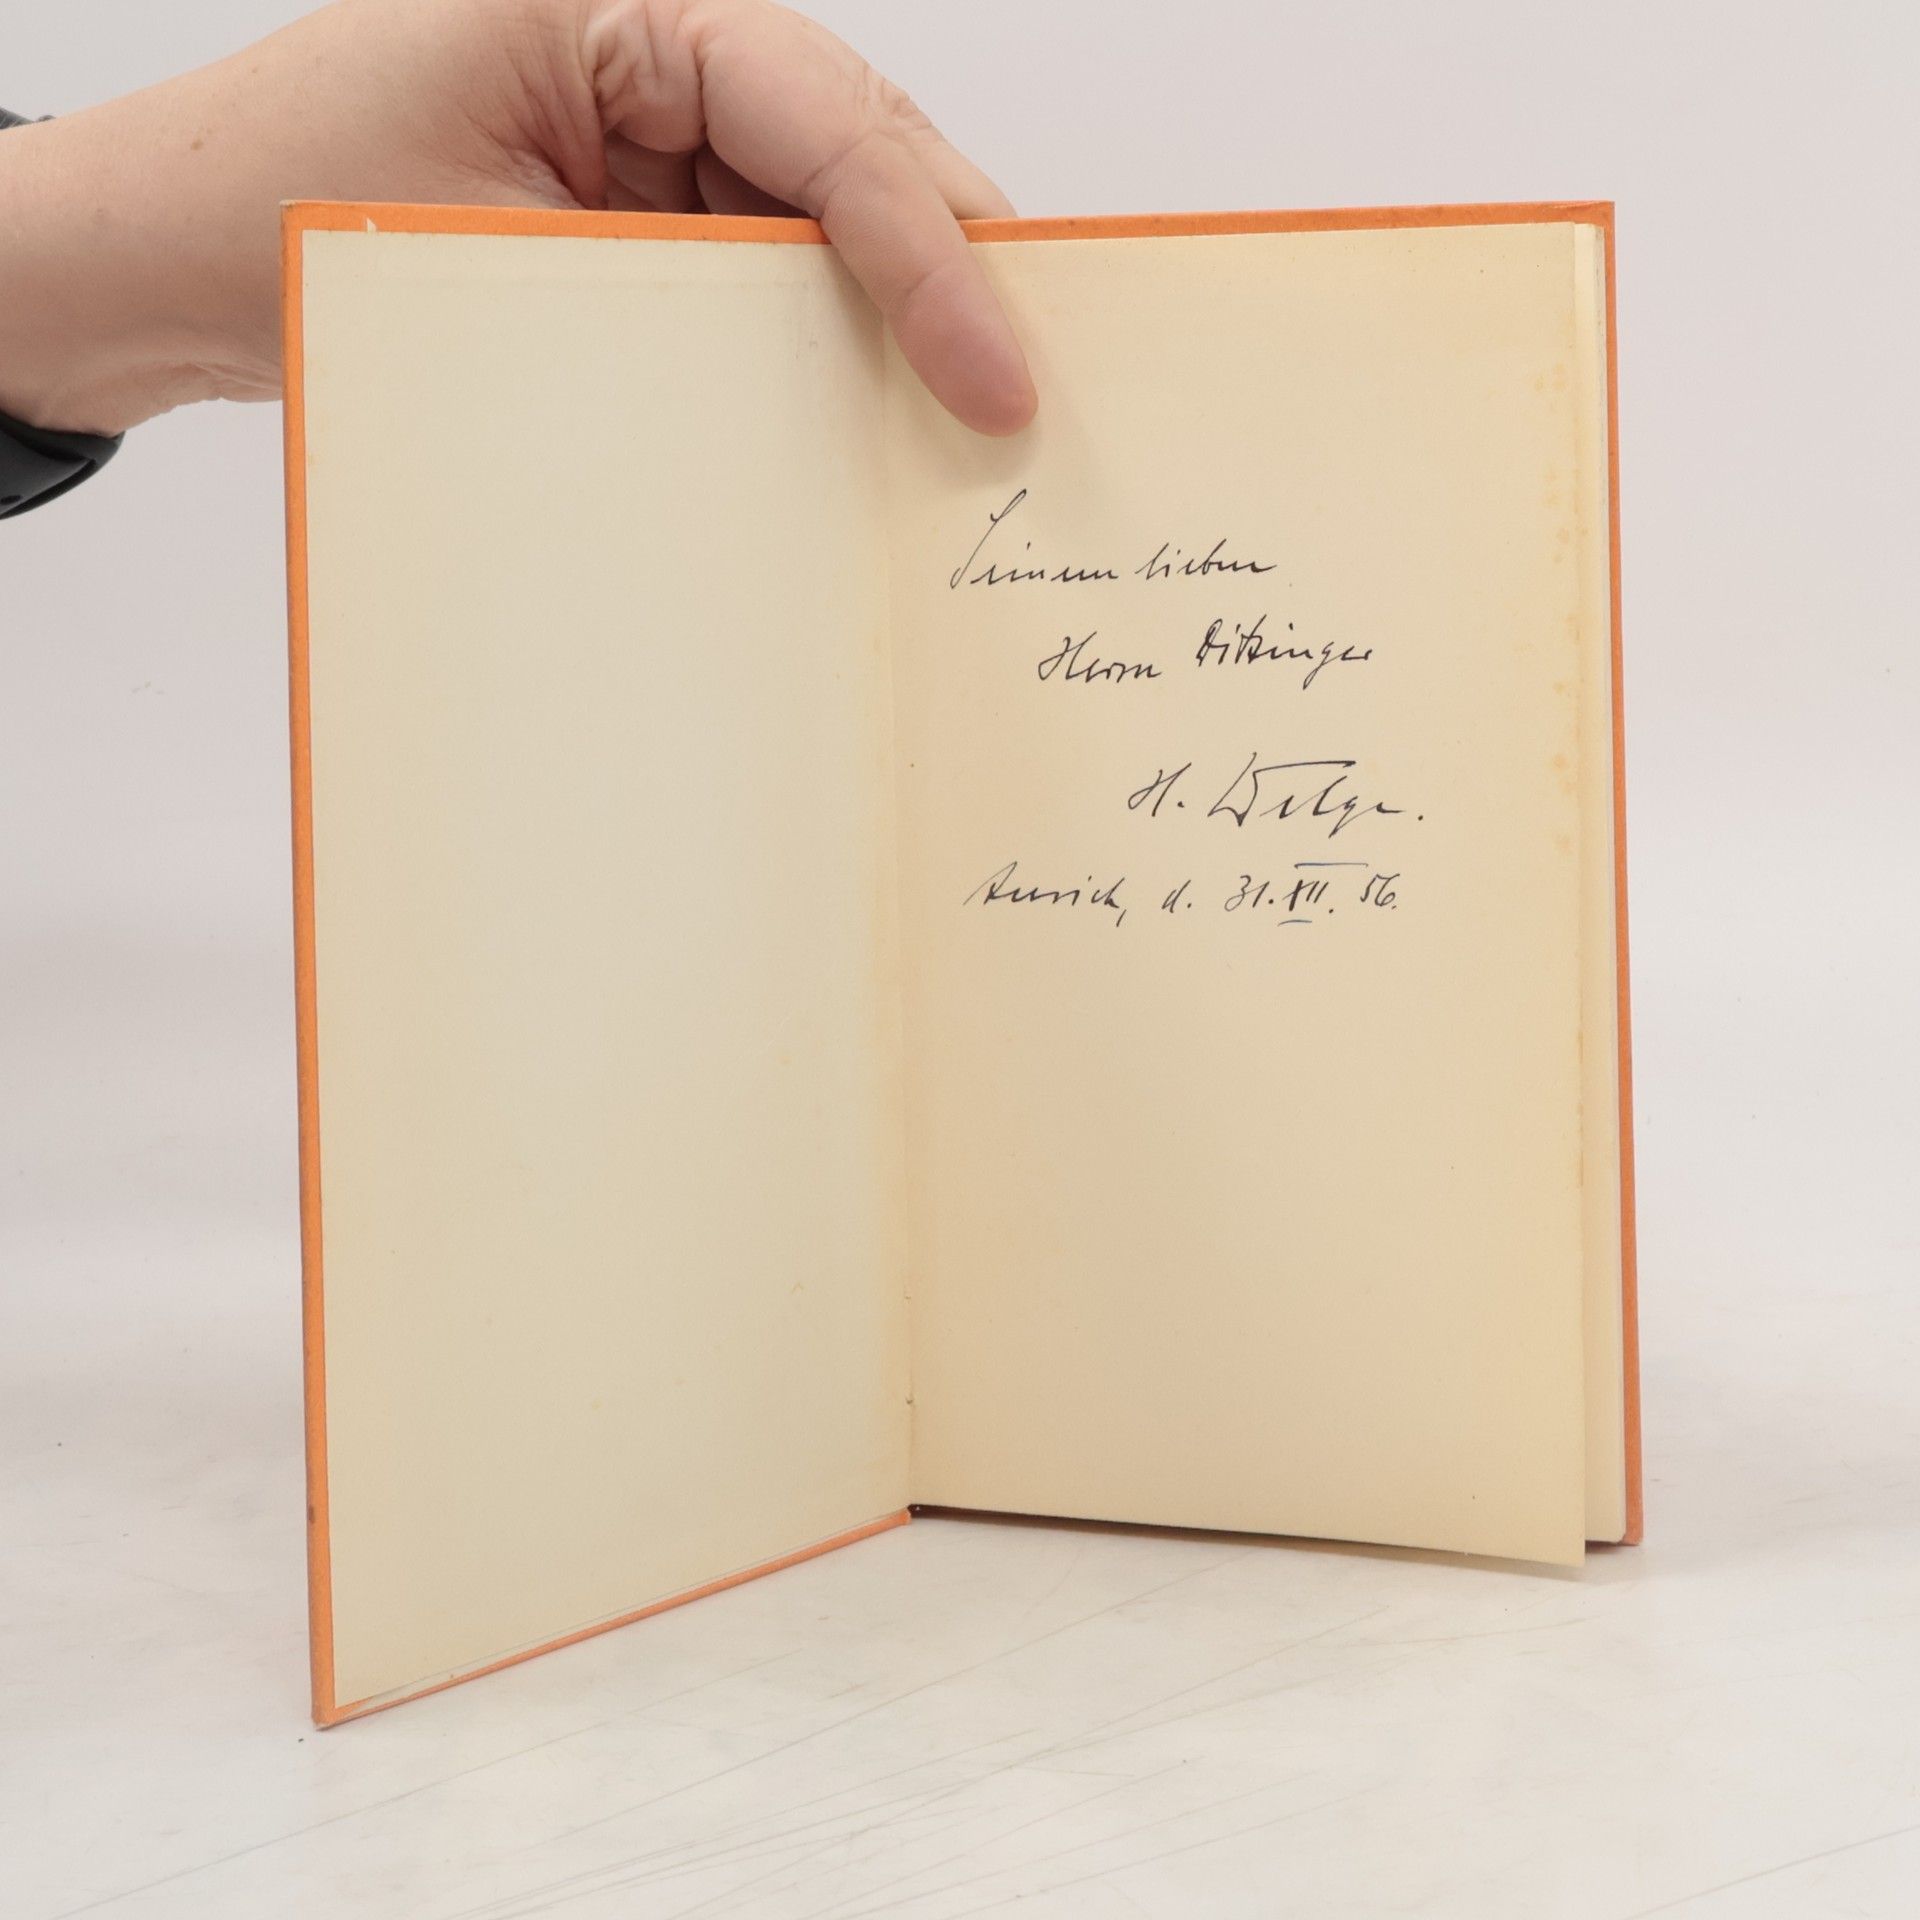 Seinem lieben
Herrn Ditzinger
H. Delge.
Aurich, d. 31. XII. 56.